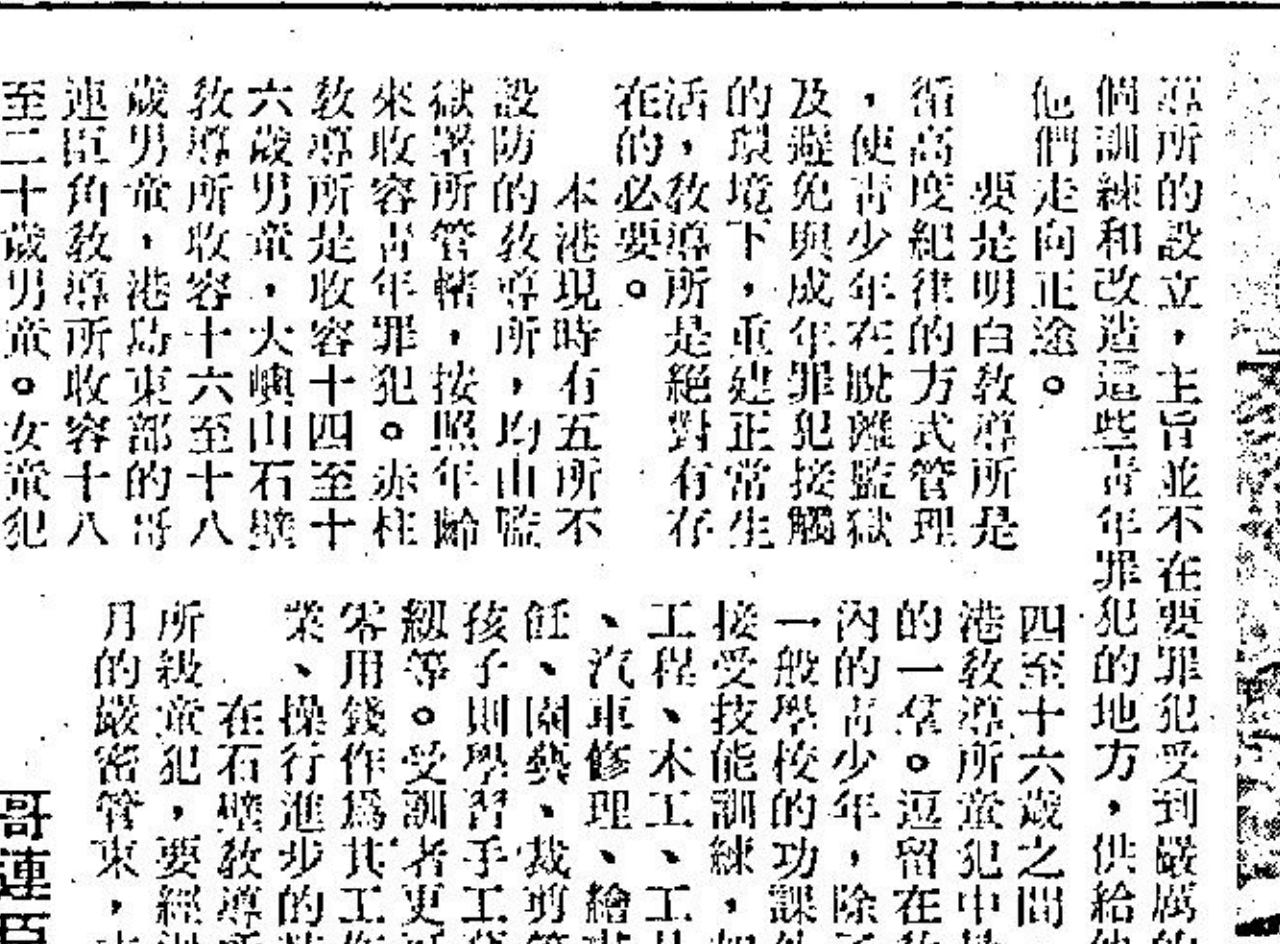 導所的設立，主旨並不在要罪犯受到嚴厲的
個訓練和改造這些青年罪犯的地方，供給他
他們走向正途。
要是明白教導所是
循高度紀律的方式管理
，使青少年在脫離監獄
及避免與成年罪犯接觸
的環境下，重建正常生
活，教導所是絕對有存
在的必要。
本港現時有五所不
設防的教導所，均由監
獄署所管轄，按照年齡
來收容青年罪犯。赤柱
教導所是收容十四至十
六歲男童，大嶼山石壁
教導所收容十六至十八
歲男童，港島東部的哥
連臣角教導所收容十八
至二十歲男童。女童犯
四至十六歲之間
港教導所童犯中
的一羣。逗留在
內的青少年，除
一般學校的功課
接受技能訓練，
工程、木工、工
、汽車修理、繪
飪、園藝、裁剪
孩子則學習手工
級等。受訓者更
零用錢作爲其工
業、操行進步的
在石壁教導所
所級童犯，要經
月的嚴密管束，
哥連臣